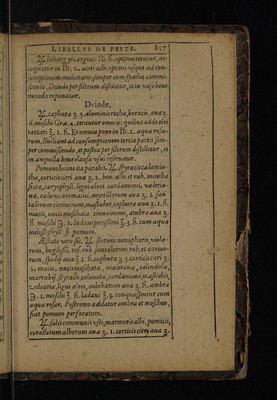 LIBELLVS DE PESTE. 857
℞. lithargyri argenti ℔. ß. optime teratur, de-
coquatur in ℔. 2. aceti albi optimi vsque ad con-
sumptionem medietatis, semper cum spatha commi-
scendo. Deinde per filtrum distilletur, & in vase bene
mundo reponatur.
Deinde,
℞. caphura ʒ. 3. aluminis rocha, boracis, ana ʒ.
ß. moschi Gra. 2. terantur omnia: quibus adde olei
tartari ℥. 1. ß. Et omnia pone in ℔. 2. aqua rosa-
rum, bulliant ad consumptionem tertia partis sem-
per commiscendo, & postea per filtrum distilletur, &
in ampulla bene clausa vsui reseruetur.
Pomum bruni ita parabis. ℞. styracis calamin-
tha, corticis citri ana ʒ. 2. ben. albi & rub. mentha
sicca, caryophyll. ligni aloes cardamomi, valeria-
na, calami aromatici, myrtillorum ana ʒ. 1. san
talorum citrinorum, mastiches, caphura ana ʒ. 1. ß.
macis, nucis moschata cinnamomi, ambra ana ʒ.
ß. moschi ℈. 1. ladani purissimi ℥. 3. ß. cum aqua
melissophyll. fi. pomum.
Æstate vero sic. ℞. florum nenupharis, viola-
rum, buglossa, ros. rub. santalorum rub. & citrino-
rum, spodij ana ʒ. 1. ß. caphura ʒ. 3. corticis citri ʒ.
2. macis, nucis moschata, maiorana, calendula,
marrubij styracis calamita, cardamomi, mastiches,
zedoaria, ligni aloes, cubebarum ana ʒ. ß. ambra
℈. 1. moschi ℥. ß. ladani ℥. 3. conquassetur cum
aqua rosar. Postremo addatur ambra & moschus,
fiat pomum perforatum.
℞. salis communis vsti, marmoris albi, pumicis,
corallorum alborum ana ʒ. 1. corticis citri, ana ʒ.